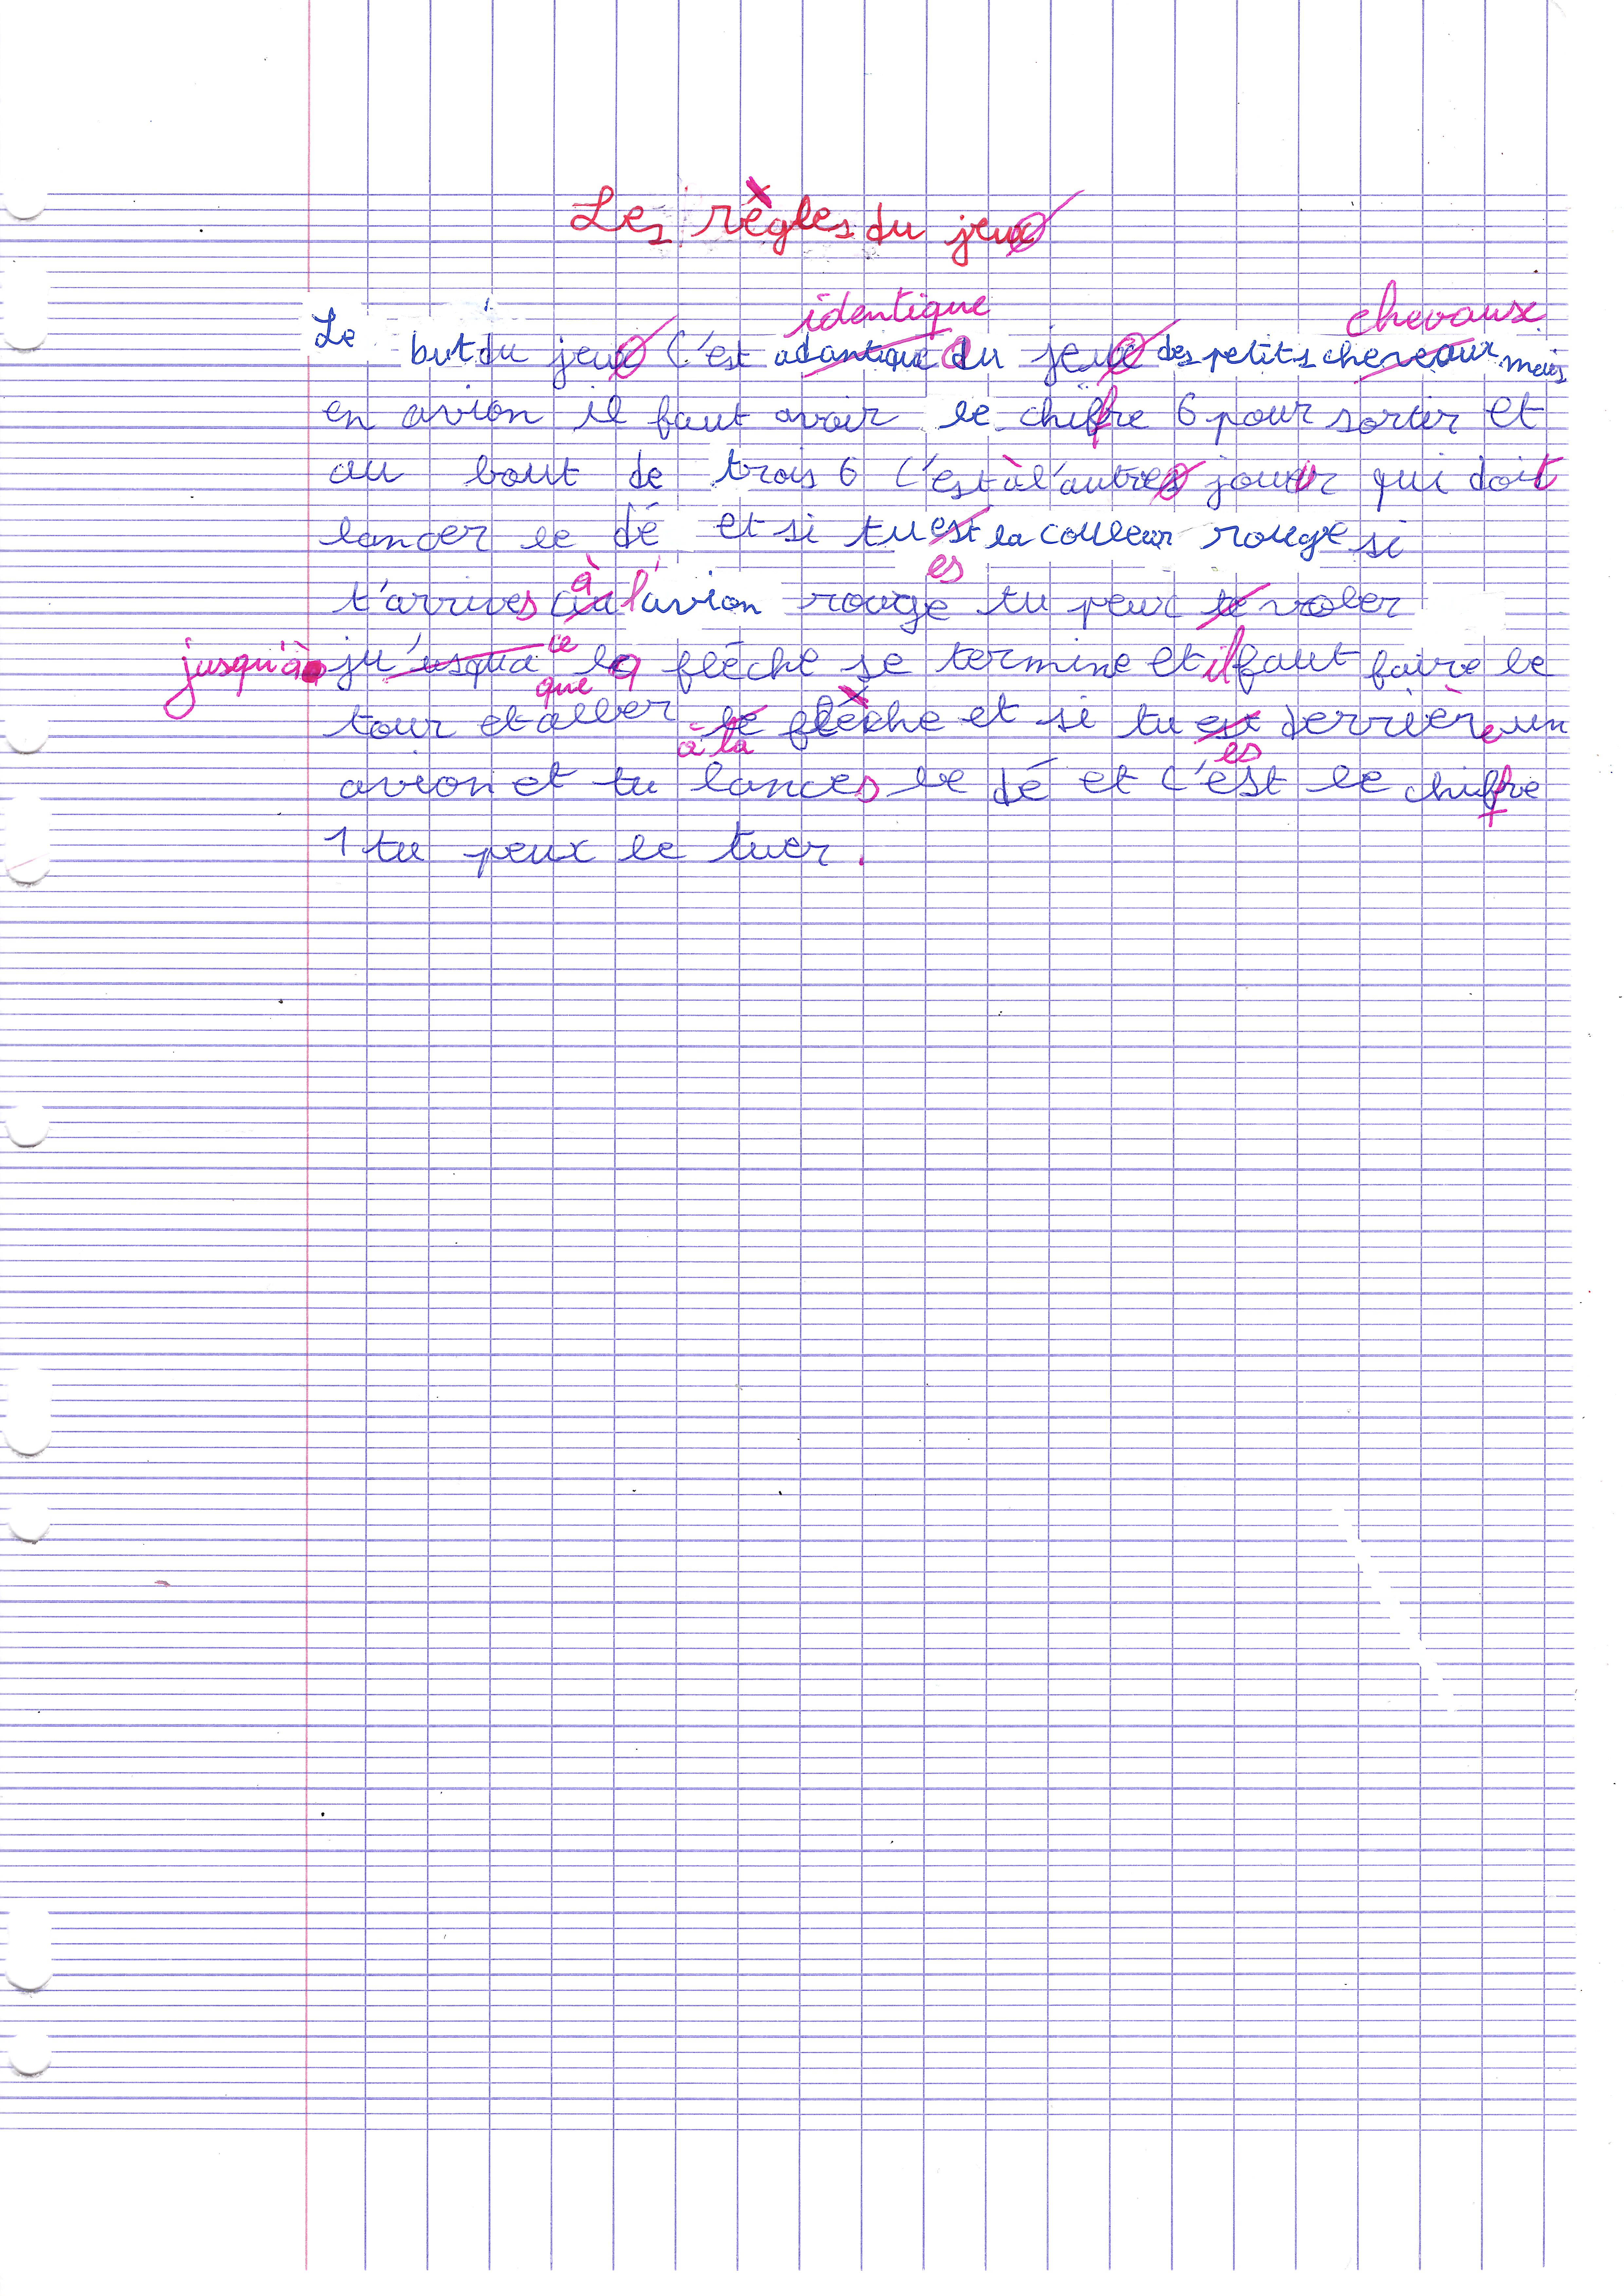 Les règles du jeux
identique chevaux
Le but du jeux c'est adantique du jeux des petits cheveaux mais
en avion il faut avoir le chiffre 6 pour sortir et
au bout de trois 6 c'est à l'autres joueur qui doit
lancer le dé et si tu est la couleur rouge si
es
t'arrives à l'avion rouge tu peux le voler
jusqu'à ju'usqua ce que la flèche se termine et il faut faire le
tour et aller le flèche et si tu est derrière un
à la es
avion et tu lances le dé et c'est le chiffre
1 tu peux le tuer.